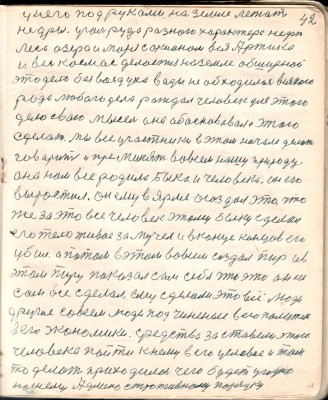 у него под руками, на земле лежат 42
недры. угля руда разного характера недр
леса озера и моря с океаном вся Арктика
и весь космос делается на земле обширной
это дело без воздуха воды не обходилось всякого
рода любого дела рождал человек для этого
дело своё мысли она обосновывала этого
сделать. мы все участники в этом начали делать
говорить и применять во всем нашу природу
она нам все родила быка и человека. он его
вырастил. он ему в ярме создал это, что
же за это все человек этому быку сделал
его тело живое замучил и в конце концов его
убил. а потом в этом во всем создал пир и в
этом пиру показал сам себя что это они
сам все сделал. ему сделали это всё люди
другие совсем люди подчиненные его политики
его экономики. средства заставили этого
человека пойти к нему в его условие и там
то делать приходилось чего будет угодно
нашему Административному порядку